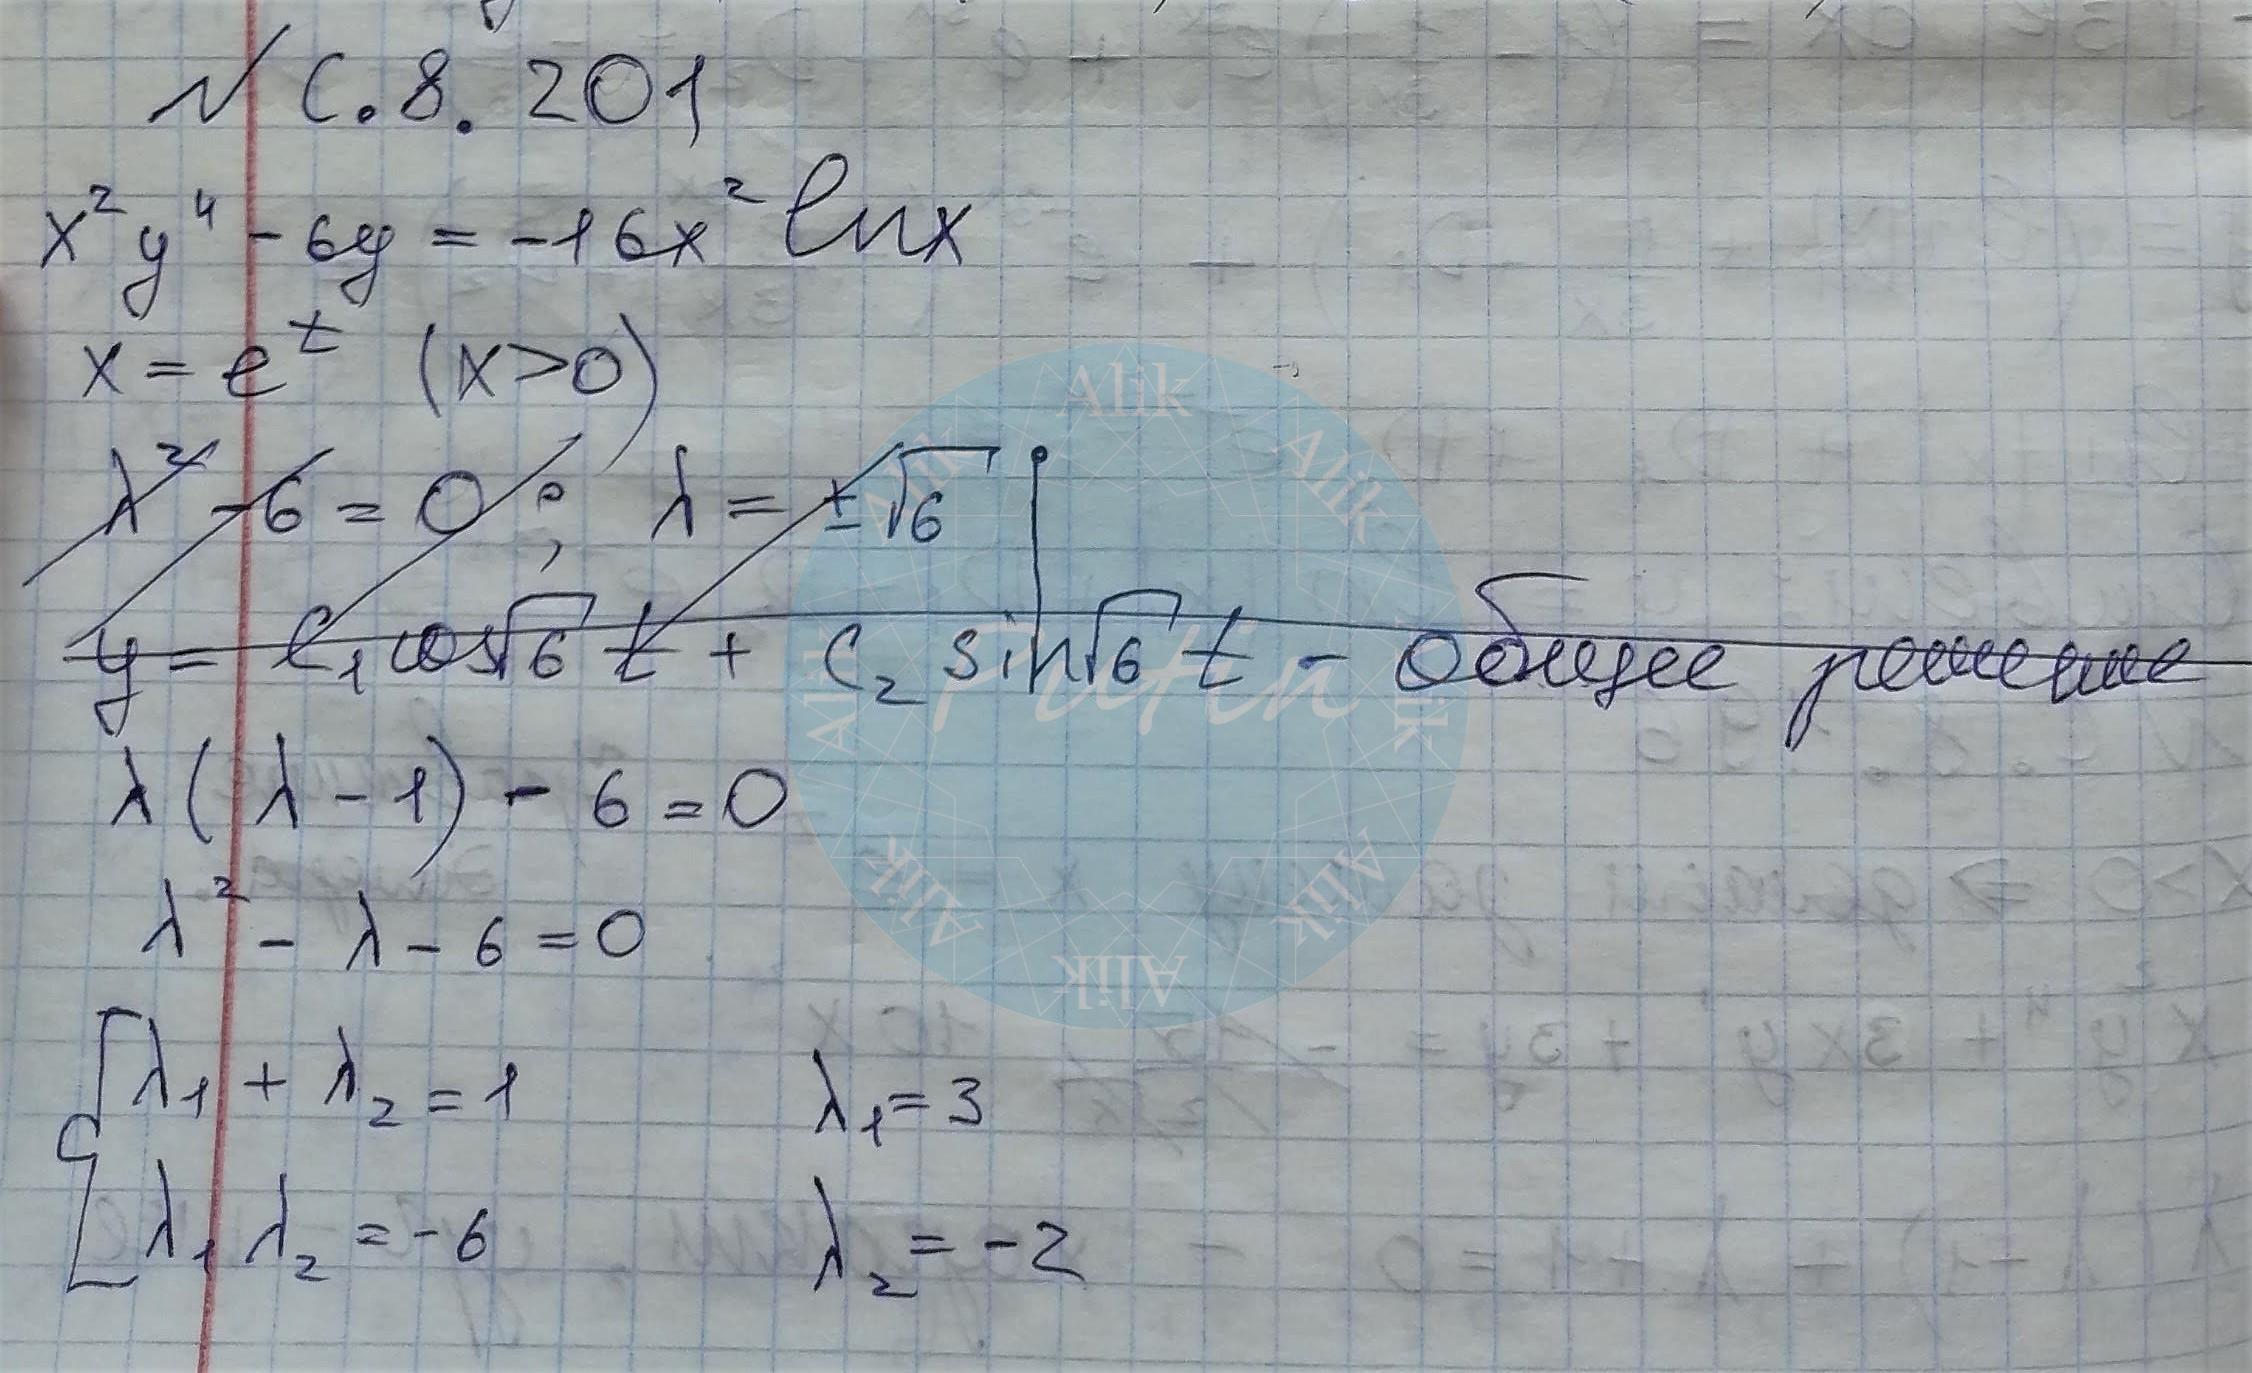 № С.8.201
x² y'' - 6y = -16x² lnx
x = e^t (x>0)
λ² - 6 = 0 ; λ = ±√6
y = C₁ cos√6 t + C₂ sin√6 t - общее решение
λ(λ - 1) - 6 = 0
λ² - λ - 6 = 0
λ₁ + λ₂ = 1 λ₁ = 3
λ₁ λ₂ = -6 λ₂ = -2
Alik
Alik
Alik
Alik
Alik
Alik
Alik
Alik
Putin